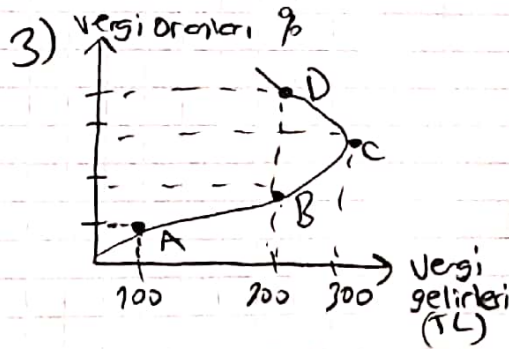 3) vergi oranları %
D
C
B
A
100 200 300
vergi
gelirleri
(TL)